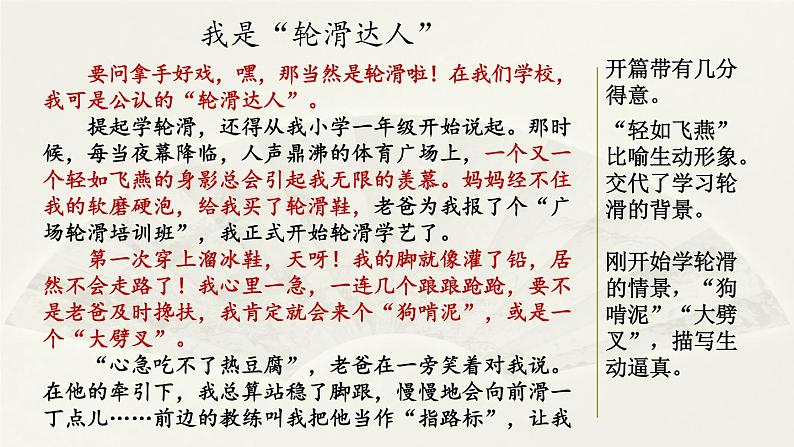 我是“轮滑达人”
要问拿手好戏，嘿，那当然是轮滑啦！在我们学校，
我可是公认的“轮滑达人”。
提起学轮滑，还得从我小学一年级开始说起。那时
候，每当夜幕降临，人声鼎沸的体育广场上，一个又一
个轻如飞燕的身影总会引起我无限的羡慕。妈妈经不住
我的软磨硬泡，给我买了轮滑鞋，老爸为我报了个“广
场轮滑培训班”，我正式开始轮滑学艺了。
第一次穿上溜冰鞋，天呀！我的脚就像灌了铅，居
然不会走路了！我心里一急，一连几个踉踉跄跄，要不
是老爸及时搀扶，我肯定就会来个“狗啃泥”，或是一
个“大劈叉”。
“心急吃不了热豆腐”，老爸在一旁笑着对我说。
在他的牵引下，我总算站稳了脚跟，慢慢地会向前滑一
丁点儿……前边的教练叫我把他当作“指路标”，让我
开篇带有几分
得意。
“轻如飞燕”
比喻生动形象。
交代了学习轮
滑的背景。
刚开始学轮滑
的情景，“狗
啃泥”“大劈
叉”，描写生
动逼真。